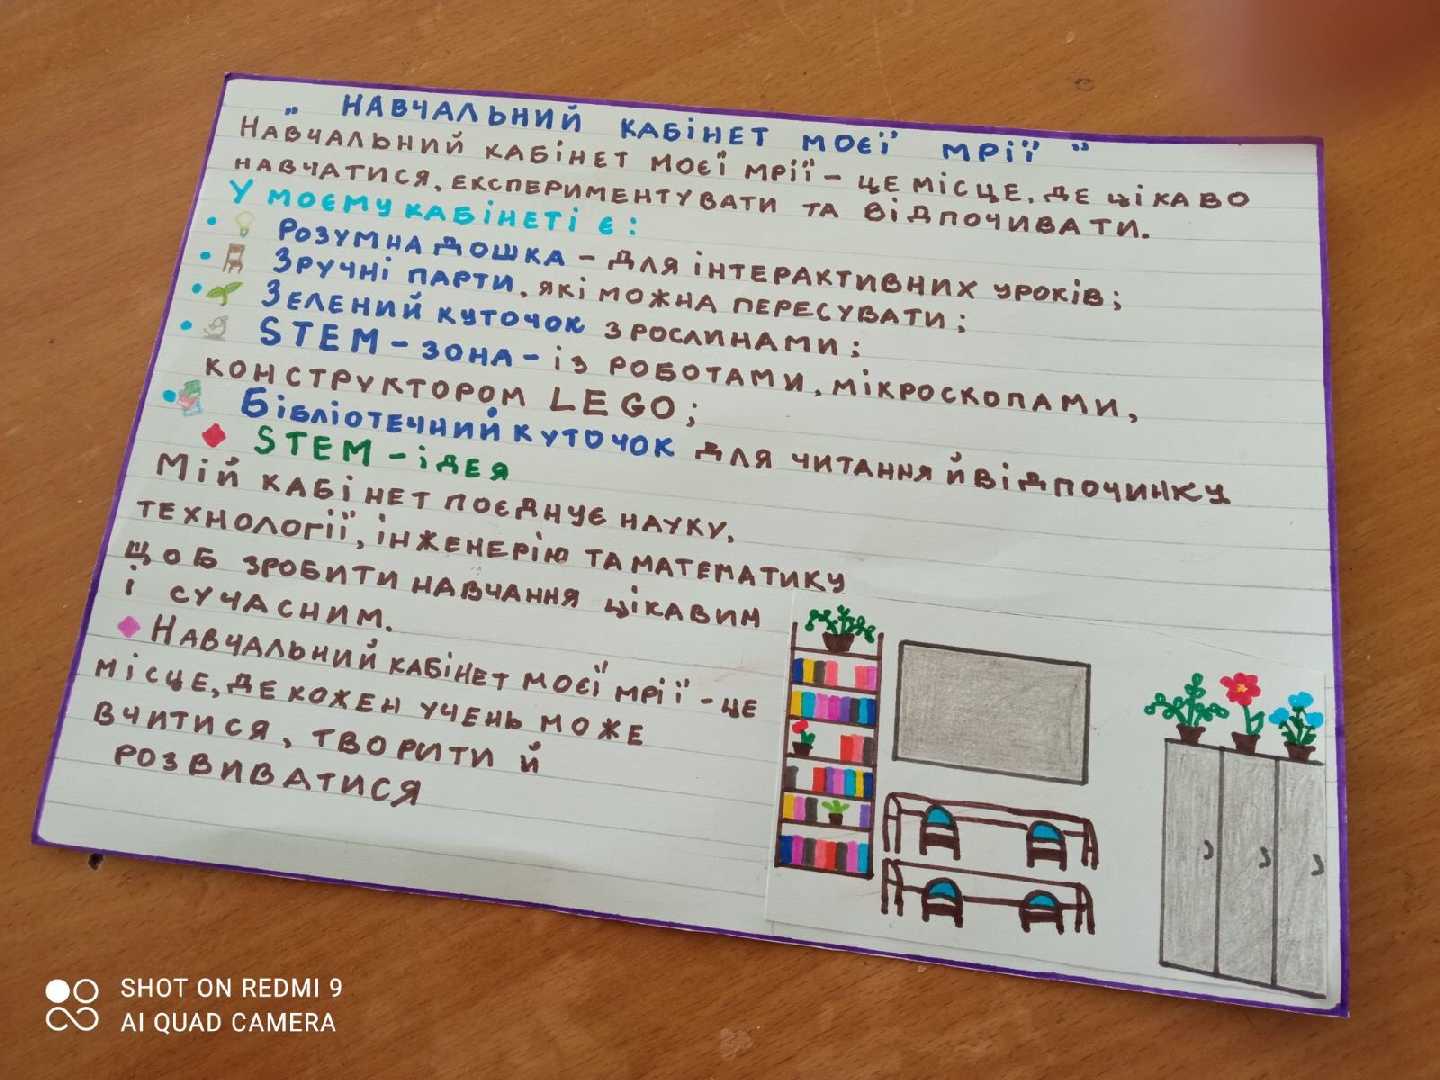 „ НАВЧАЛЬНИЙ КАБІНЕТ МОЄЇ МРІЇ ”
НАВЧАЛЬНИЙ КАБІНЕТ МОЄЇ МРІЇ – ЦЕ МІСЦЕ, ДЕ ЦІКАВО
НАВЧАТИСЯ, ЕКСПЕРИМЕНТУВАТИ ТА ВІДПОЧИВАТИ.
У МОЄМУ КАБІНЕТІ Є:
• РОЗУМНА ДОШКА – ДЛЯ ІНТЕРАКТИВНИХ УРОКІВ;
• ЗРУЧНІ ПАРТИ, ЯКІ МОЖНА ПЕРЕСУВАТИ;
• ЗЕЛЕНИЙ КУТОЧОК З РОСЛИНАМИ;
• STEM – ЗОНА – ІЗ РОБОТАМИ, МІКРОСКОПАМИ,
КОНСТРУКТОРОМ LEGO;
• БІБЛІОТЕЧНИЙ КУТОЧОК ДЛЯ ЧИТАННЯ Й ВІДПОЧИНКУ
STEM – ІДЕЯ
МІЙ КАБІНЕТ ПОЄДНУЄ НАУКУ,
ТЕХНОЛОГІЇ, ІНЖЕНЕРІЮ ТА МАТЕМАТИКУ
ЩОБ ЗРОБИТИ НАВЧАННЯ ЦІКАВИМ
І СУЧАСНИМ.
НАВЧАЛЬНИЙ КАБІНЕТ МОЄЇ МРІЇ – ЦЕ
МІСЦЕ, ДЕ КОЖЕН УЧЕНЬ МОЖЕ
ВЧИТИСЯ, ТВОРИТИ Й
РОЗВИВАТИСЯ
SHOT ON REDMI 9
AI QUAD CAMERA